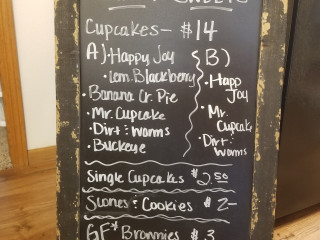 SWEETS
Cupcakes - $14
A) • Happy Joy
• Lem. Blackberry
• Banana Cr. Pie
• Mr. Cupcake
• Dirt & Worms
• Buckeye
B)
• Happ
Joy
• Mr.
Cupcake
• Dirt &
Worms
Single Cupcakes $2.50
Scones & Cookies $2-
GF* Brownies $3